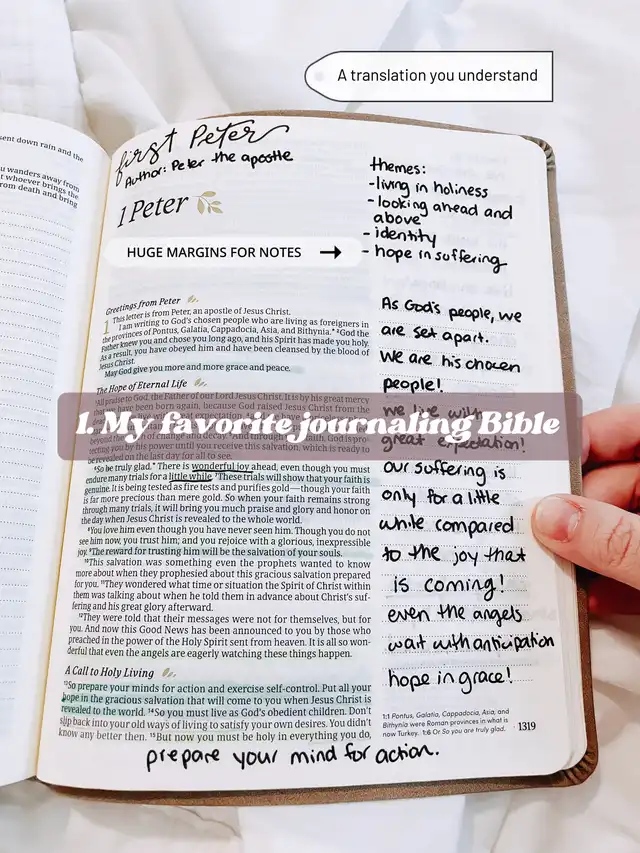 sent down rain and the
u wanders away from
t whoever brings the
rom death and bring
A translation you understand
first Peter
Author: Peter the apostle
1 Peter
HUGE MARGINS FOR NOTES →
themes:
-living in holiness
-looking ahead and
above
-identity
-hope in suffering
Greetings from Peter
1 This letter is from Peter, an apostle of Jesus Christ.
I am writing to God's chosen people who are living as foreigners in
the provinces of Pontus, Galatia, Cappadocia, Asia, and Bithynia.* ²God the
Father knew you and chose you long ago, and his Spirit has made you holy.
As a result, you have obeyed him and have been cleansed by the blood of
Jesus Christ.
May God give you more and more grace and peace.
The Hope of Eternal Life
All praise to God, the Father of our Lord Jesus Christ. It is by his great mercy
that we have been born again, because God raised Jesus Christ from the
1. My favorite journaling Bible
beyond the reach of change and decay. ⁵And through your faith, God is pro-
tecting you by his power until you receive this salvation, which is ready to
be revealed on the last day for all to see.
⁶So be truly glad.* There is wonderful joy ahead, even though you must
endure many trials for a little while. ⁷These trials will show that your faith is
genuine. It is being tested as fire tests and purifies gold—though your faith
is far more precious than mere gold. So when your faith remains strong
through many trials, it will bring you much praise and glory and honor on
the day when Jesus Christ is revealed to the whole world.
⁸You love him even though you have never seen him. Though you do not
see him now, you trust him; and you rejoice with a glorious, inexpressible
joy. ⁹The reward for trusting him will be the salvation of your souls.
¹⁰This salvation was something even the prophets wanted to know
more about when they prophesied about this gracious salvation prepared
for you. ¹¹They wondered what time or situation the Spirit of Christ within
them was talking about when he told them in advance about Christ's suf-
fering and his great glory afterward.
¹²They were told that their messages were not for themselves, but for
you. And now this Good News has been announced to you by those who
preached in the power of the Holy Spirit sent from heaven. It is all so won-
derful that even the angels are eagerly watching these things happen.
A Call to Holy Living
¹³So prepare your minds for action and exercise self-control. Put all your
hope in the gracious salvation that will come to you when Jesus Christ is
revealed to the world. ¹⁴So you must live as God's obedient children. Don't
slip back into your old ways of living to satisfy your own desires. You didn't
know any better then. ¹⁵But now you must be holy in everything you do,
As God's people, we
are set apart.
We are his chosen
people!
we live with
great expectation!
our suffering is
only for a little
while compared
to the joy that
is coming!
even the angels
wait with anticipation
hope in grace!
1:1 Pontus, Galatia, Cappadocia, Asia, and
Bithynia were Roman provinces in what is
now Turkey. 1:6 Or So you are truly glad.
1319
prepare your mind for action.